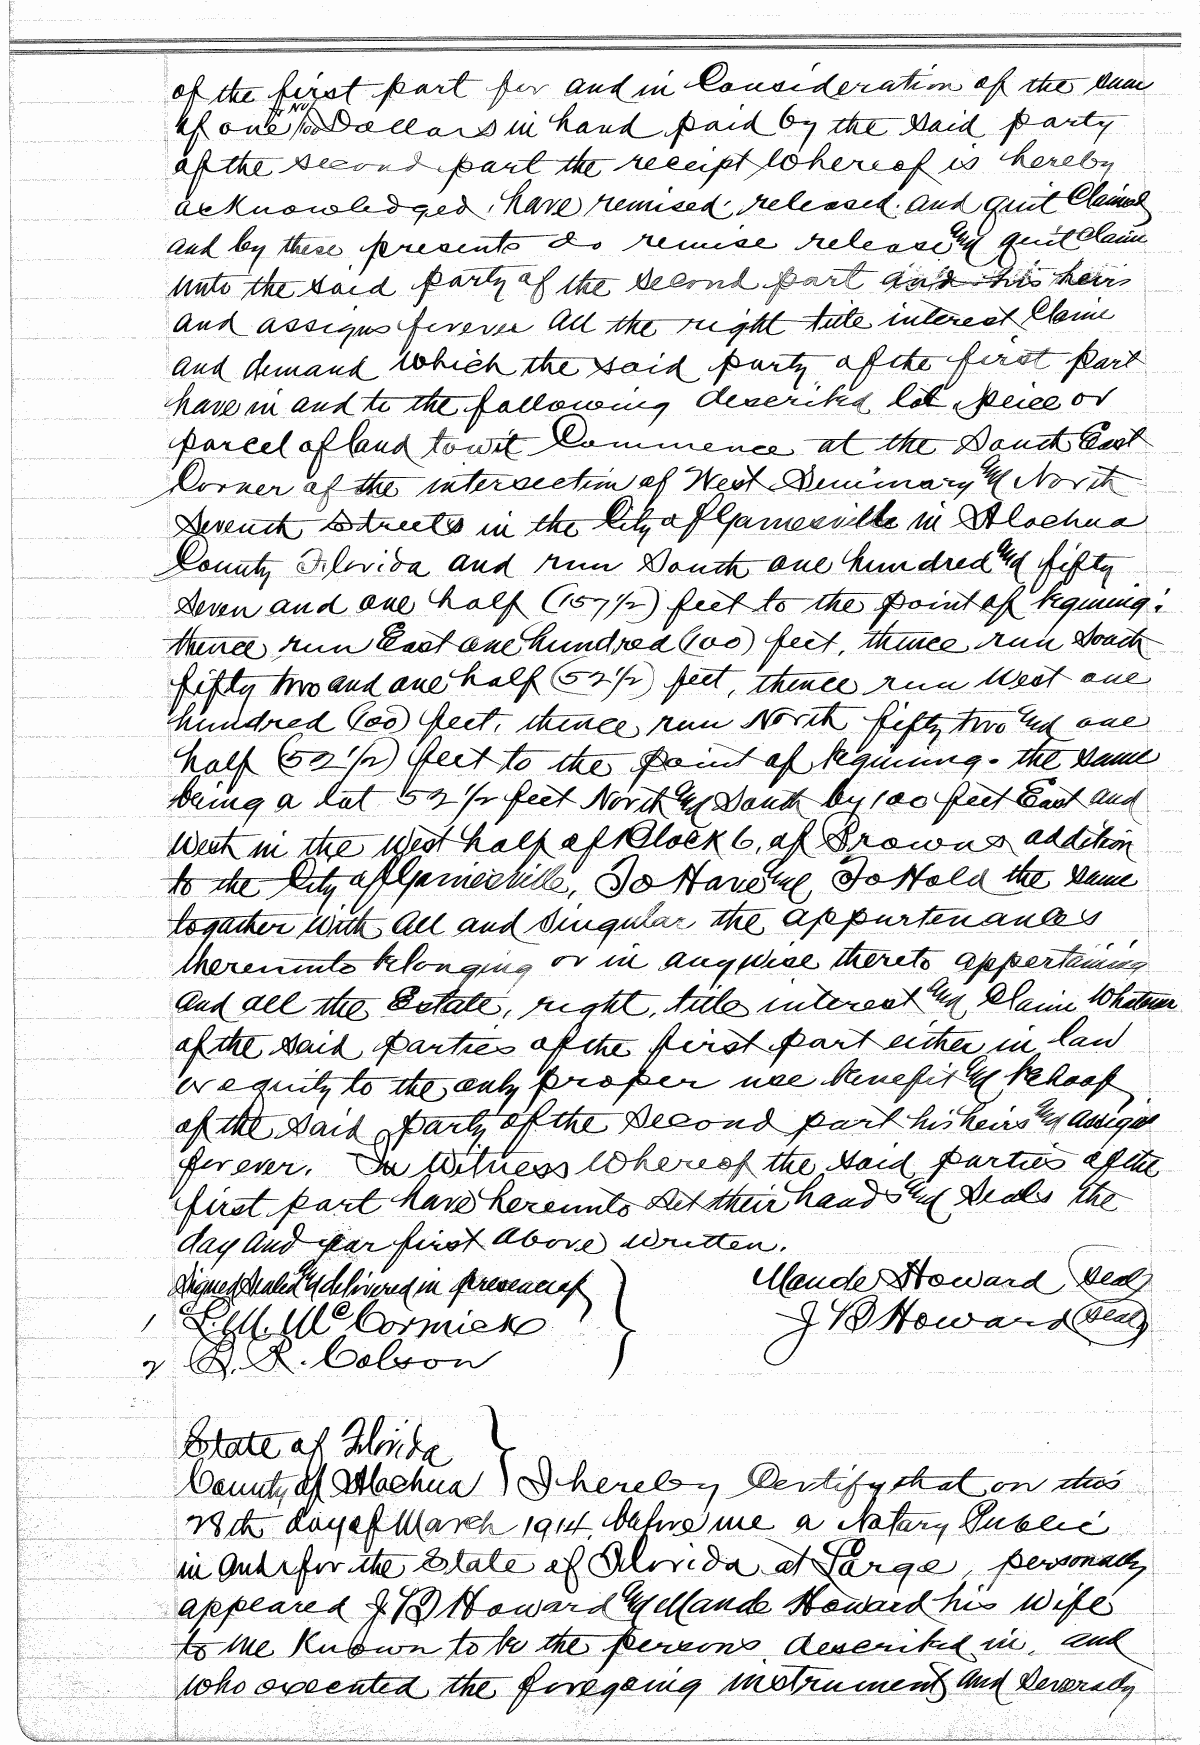 of the first part for and in Consideration of the sum
of one no/100 Dollars in hand paid by the said party
of the second part the receipt Whereof is hereby
acknowledged, have remised, released, and quit Claimed
and by these presents do remise release and quit Claim
unto the said party of the second part and his heirs
and assigns forever all the right title interest Claim
and demand which the said party of the first part
have in and to the following described lot peice or
parcel of land towit Commence at the South East
Corner of the intersection of West Seminary and North
Seventh Streets in the City of Gainesville in Alachua
County Florida and run South one hundred and fifty
seven and one half (157 1/2) feet to the point of begining;
thence run East one hundred (100) feet, thence run South
fifty two and one half (52 1/2) feet, thence run West one
hundred (100) feet, thence run North fifty two and one
half (52 1/2) feet to the point of begining - the same
being a lot 52 1/2 feet North and South by 100 feet East and
West in the West half of Block 6, of Browns addition
to the City of Gainesville, To Have and To Hold the same
togather With all and singular the appurtenances
thereunto belonging or in anywise thereto appertaining
and all the Estate, right, title interest and Claim Whatever
of the said parties of the first part either in law
or equity to the only proper use benefit and behoof
of the said party of the second part his heirs and assigns
forever. In Witness Whereof the said parties of the
first part have hereunto set their hands and Seals the
day and year first above written.
Signed Sealed and delivered in presence of
Maude Howard (Seal)
1 L. M. McCormick
J B Howard (Seal)
2 R. R. Colson
State of Florida
County of Alachua } I hereby Certify that on this
28th day of March 1914, before me a Notary Public
in and for the State of Florida at Large, personally
appeared J B Howard and Maude Howard his Wife
to me Known to be the persons described in, and
who executed the foregoing instrument and severally